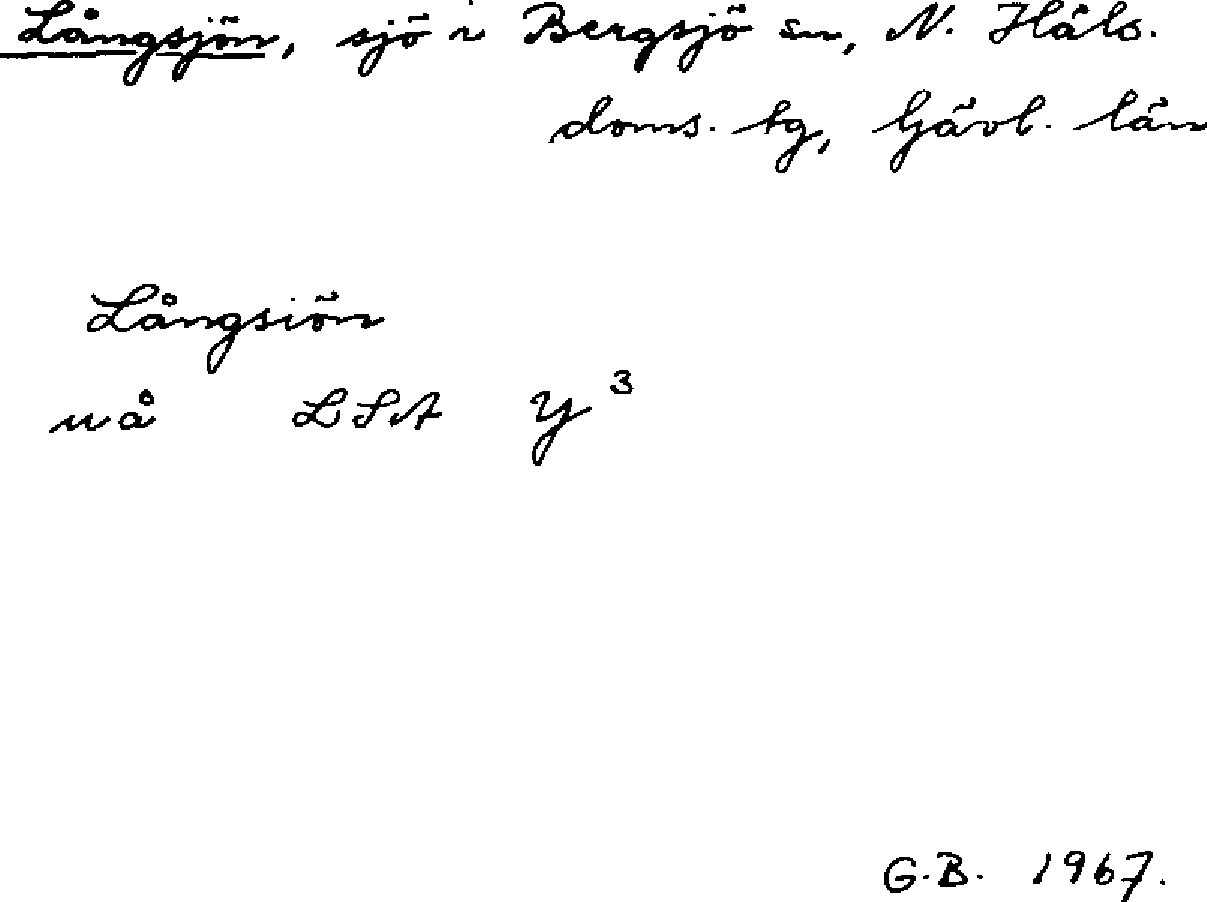 Långsjön, sjö i Bergsjö sn, N. Häls.
doms. tg, Gävl. län
Långsiön
uå LSA Y3
G.B. 1967.